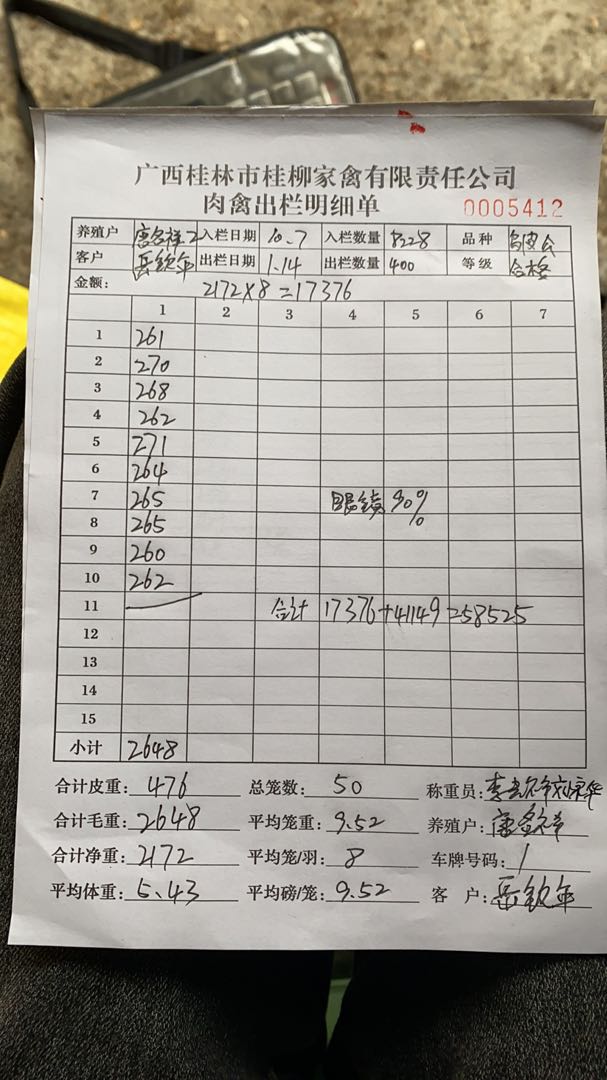 广西桂林市桂柳家禽有限责任公司
肉禽出栏明细单 0005412
养殖户 入栏日期 10.7 入栏数量 8228 品种
客户 岳钦年 出栏日期 1.14 出栏数量 400 等级 合格
金额: 2172×8=17376
1 2 3 4 5 6 7
1 261
2 270
3 268
4 262
5 271
6 264
7 265 眼镜 30%
8 265
9 260
10 262
11 合计 17376+41149=58525
12
13
14
15
小计 2648
合计皮重: 476 总笼数: 50 称重员:
合计毛重: 2648 平均笼重: 9.52 养殖户:
合计净重: 2172 平均笼/羽: 8 车牌号码: 1
平均体重: 5.43 平均磅/笼: 9.52 客户: 岳钦年